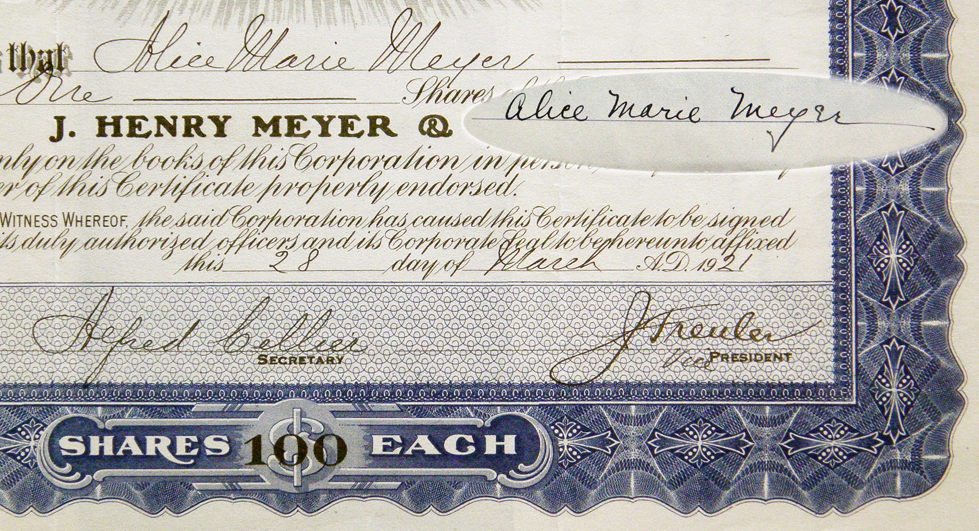 that Alice Marie Meyer
One Shares of
Alice Marie Meyer
J. HENRY MEYER &
nly on the books of this Corporation in person
er of this Certificate properly endorsed.
WITNESS WHEREOF, the said Corporation has caused this Certificate to be signed
its duly authorized officers and its Corporate Seal to be hereunto affixed
this 28 day of March A.D. 1921
Alfred Cellier
SECRETARY
J Treuler
Vice PRESIDENT
SHARES $100 EACH